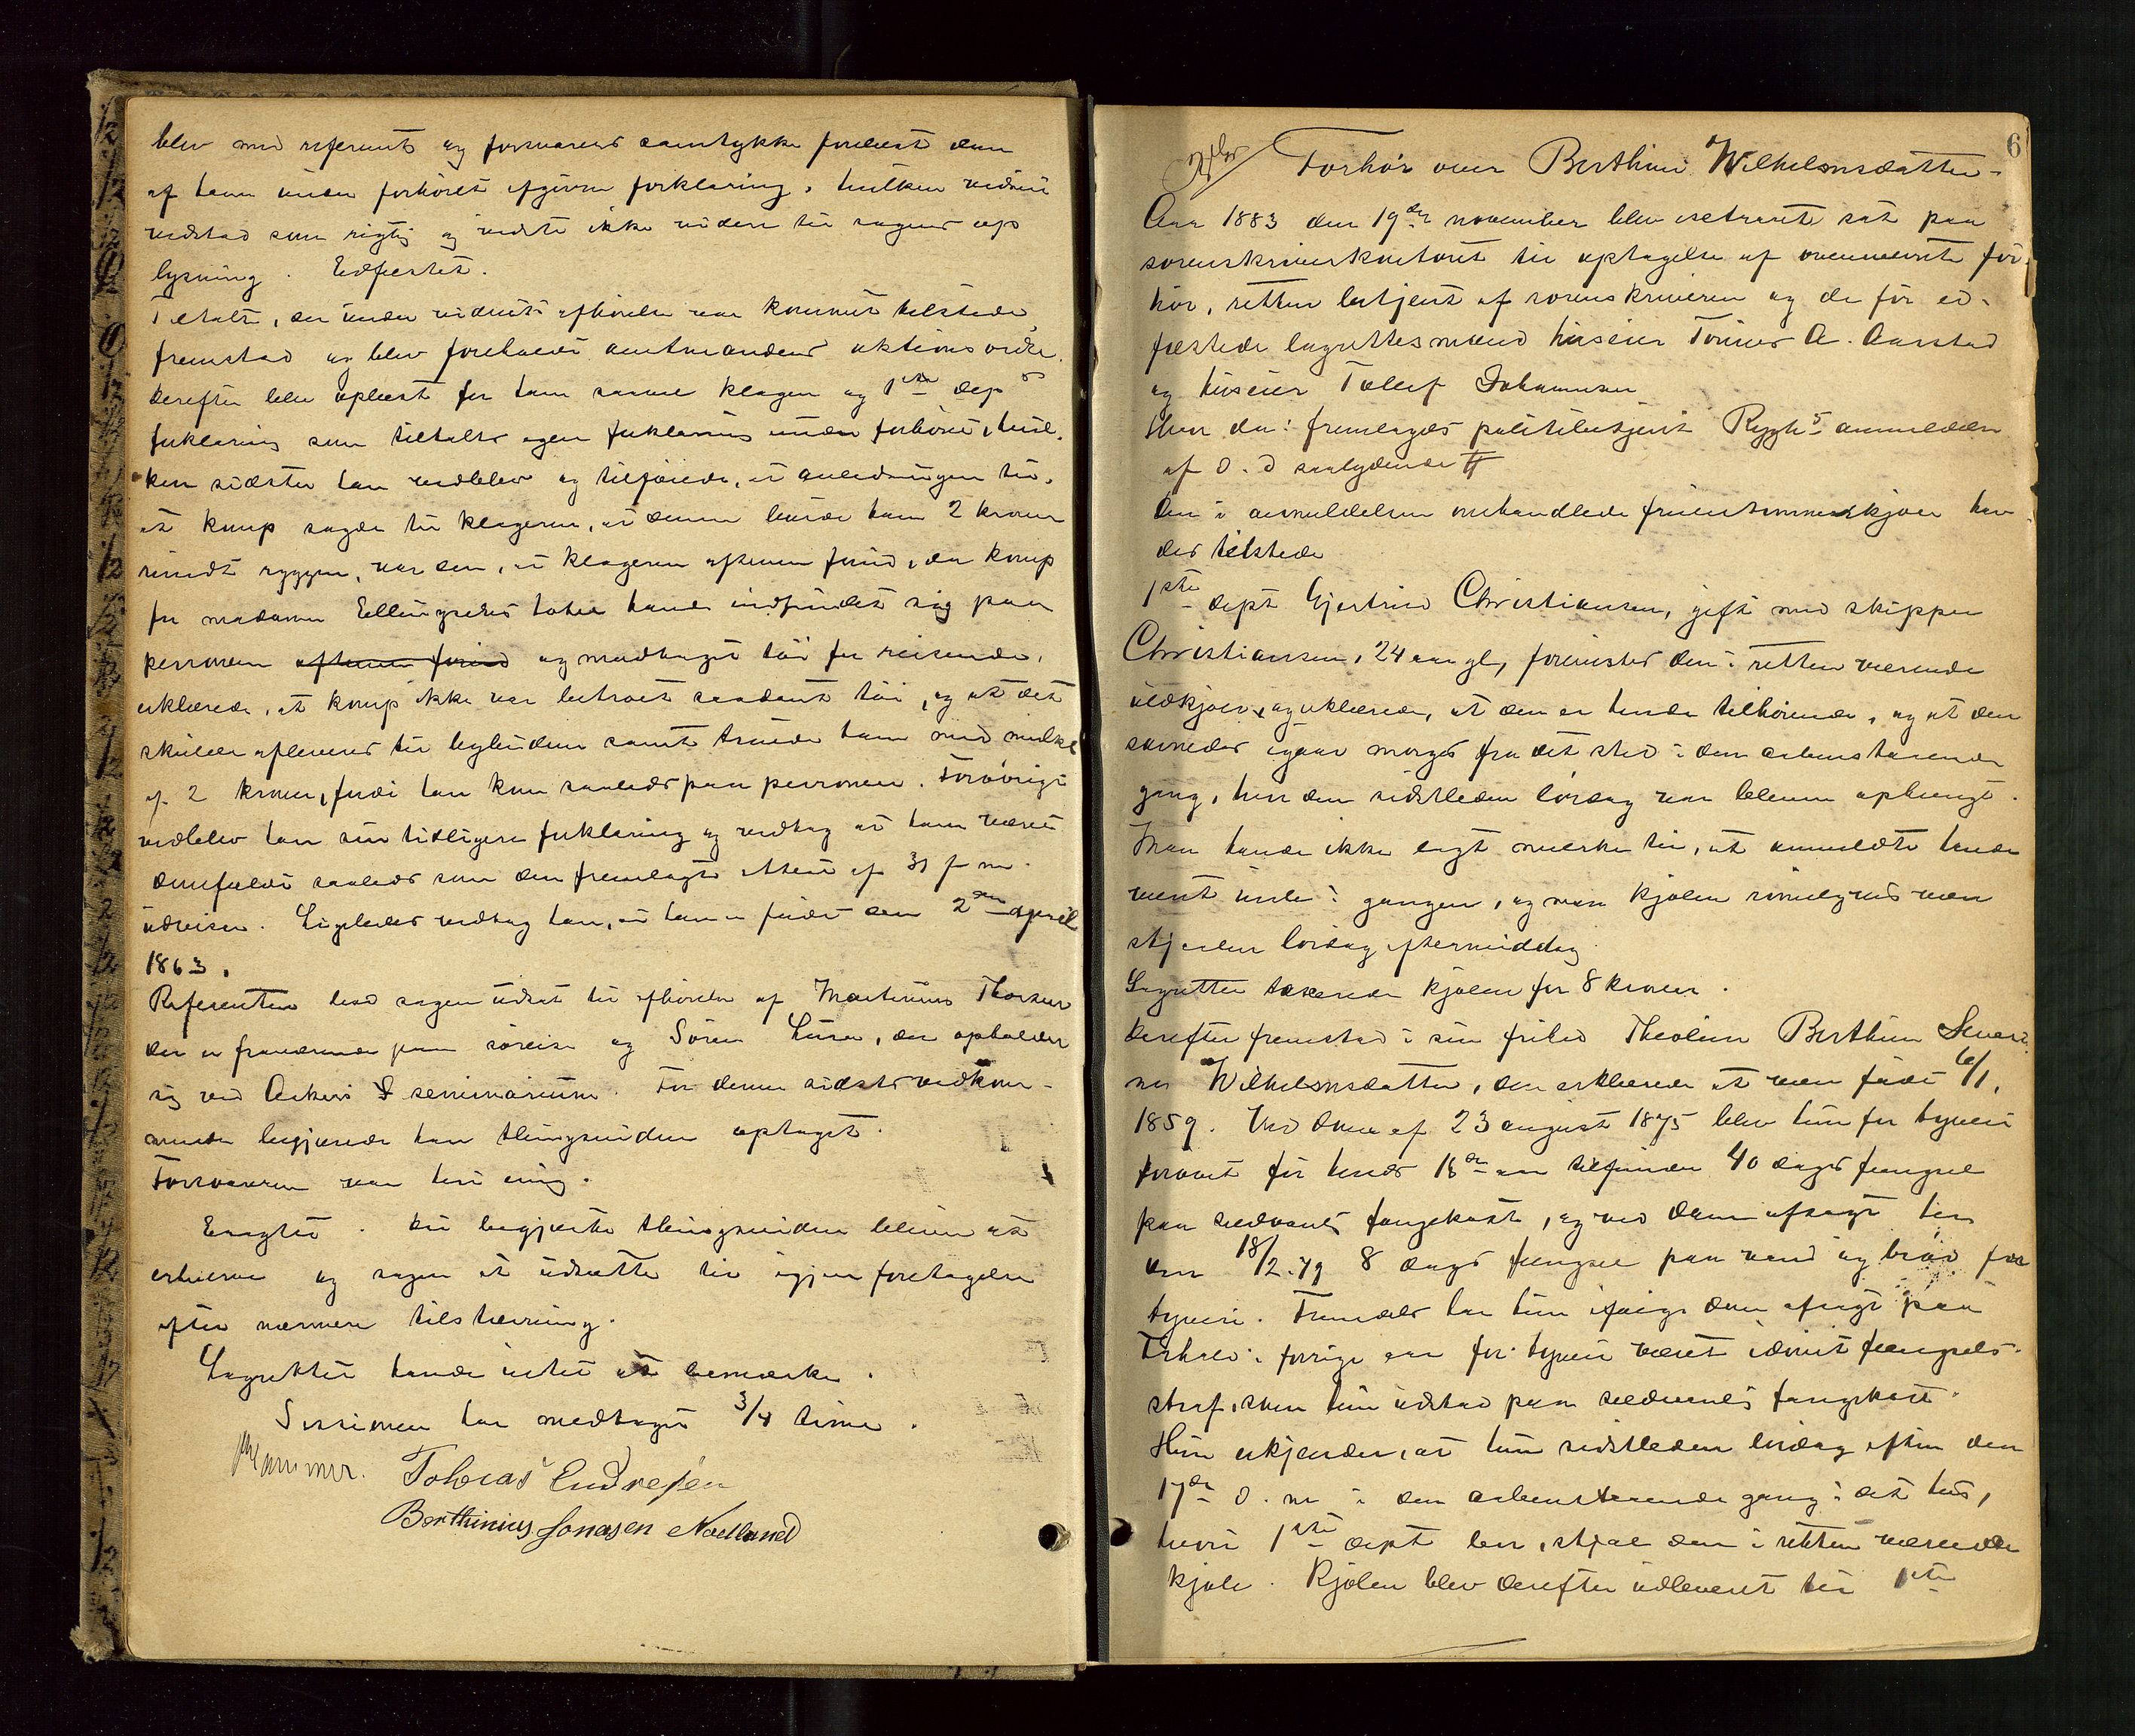 blev med referents og forsvarers samtykke forelæst den
af ham under forhöret afgivne forklaring, hvilken vidnet
vedstod som rigtig og vidste ikke videre til sagens op
lysning. Edfæstet.
Tiltalte, der under vidnets afhörelse var kommet tilstede,
fremstod og blev foreholdt amtmandens aktionsordre,
derefter blev oplæst for ham samme klagen og 1ste dep s
forklaring som tiltaltes egen forklaring under forhöret, hvil-
ken sidste han vedblev og tilföiede, at anledningen til,
at komp sagde til klageren, at denne burde ham 2 kroner
rundt ryggen, var den, at klageren aftenen forud, da komp
for madamm Ellingsens hotel havde indfundet sig paa
perronen aftenen forud og modtaget töi for reisende,
erklærede, at komp ikke var betroet saadant töi, og at det
skulde afleveres til bybudene samt truede ham med mulkt
af 2 kroner, fordi han kom saaledes paa perronen. Forövrigt
vedblev han sin tidligere forklaring og vedtog at have været
domfældt saaledes som den fremlagte attest af 31 f m
udviser. Ligeledes vedtog han, at han er födt den 2den april
1863.
Referenten bad sagen udsat til afhörelse af Martinius Thorsen
der er fraværende paa söreise og Sören Lura, der opholder
sig ved Askers seminarium. For denne sidstes vedkom-
mende begjærede han thingsvidne optaget.
Forsvareren var heri enig.
Eragtet. Det begjærte thingsvidne bliver at
erhverve og sagen at udsætte til igjen foretagelse
efter nærmere tilstævning.
Lagrettet havde intet at bemærke.
Sessionen har medtaget 3/4 time.
Tobias Endresen
Berthinius Jonasen Nodland
6
Forhör over Berthine Wilhelmsdatter.
Aar 1883 den 19de november blev extraret sat paa
sorenskriverkontoret til optagelse af ovennævnte for
hör, retten betjent af sorenskriveren og de för ed-
fæstede lagrettesmænd huseier Tönnes A. Aarstad
og huseier Tollef Johannesen
Hvor da: fremlagdes politibetjent Ryghs anmeldelse
af D. D saalydende #
Den i anmeldelsen omhandlede fruentimmerkjole hav
des tilstede
1ste dept Gjertrud Christiansen, gift med skipper
Christiansen, 24 aar gl, forevistes den i retten værende
uldkjole, og erklærede, at den er hende tilhörende, og at den
savnedes igaar morges fra det sted i den aabenstaaende
gang, hvor den sidstleden lördag var bleven ophengt.
Man havde ikke lagt mærke til, at anmeldte havde
været inde i gangen, og var kjolen rimeligvis men
stjaalen lördag eftermiddag
Lagrettet taxerede kjolen for 8 kroner.
Derefter fremstod i sin frihed Theoline Berthine Severi
ne Wilhelmsdatter, der erklærede at være födt 6/1,
1859. Ved dom af 23 august 1875 blev hun for tyveri
forövet för hendes 18de aar tilfunden 40 dages fængsel
paa sædvanlig fangekost, og ved dom afsagt her
den 18/2.79 8 dages fængsel paa vand og bröd for
tyveri. Fremdeles har hun ifölge dom afsagt paa
i forrige aar for tyveri været idömt fængsels-
straf, som hun udstod paa sædvanlig fangekost.
Hun erkjender, at hun sidstleden lördag aften den
17de d. m i den aabenstaaende gang i det hus,
hvori 1ste dept bor, stjal den i retten værende
kjole. Kjolen blev derefter udleveret til 1ste